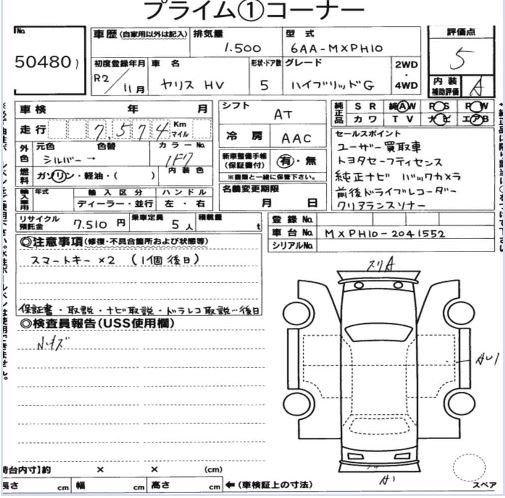 プライム①コーナー
No.
50480
車歴 (自家用以外は記入) 排気量 型式
1.500 6AA-MXPH10
評価点
5
初度登録年月 車名 形状・ドア数 グレード 2WD
R2/11月 ヤリス HV 5 ハイブリッドG ・4WD
内装補助評価 A
車検 年 月
シフト AT
純正品 S R 純A W P S P W
カワ T V ナビ エアB
走行 7,574 Km マイル
冷房 AAC
セールスポイント
ユーザー買取車
トヨタセーフティセンス
純正ナビ バックカメラ
前後ドライブレコーダー
クリアランスソナー
外色 元色 色替 カラーNo.
シルバー→ 1F7
新車整備手帳(保証書付) 有・無
※車歴と一緒に保管して下さい。
燃料 ガソリン・軽油・( ) 内装色
輸入車用 年式 輸入区分 ハンドル
ディーラー・並行 左・右
名義変更期限
月 日
リサイクル預託金 乗車定員 積載量
7.510円 5人 t
登録No.
車台No. MXPH10-2041552
シリアルNo.
◎注意事項(修復・不具合箇所および状態等)
スマートキー×2 (1個後日)
保証書・取説・ナビ取説・ドラレコ取説…後日
◎検査員報告(USS使用欄)
小キズ
スリA
AU1
A1
荷台内寸)約 × × (cm)
長さ cm 幅 cm 高さ cm ←(車検証上の寸法)
スペア